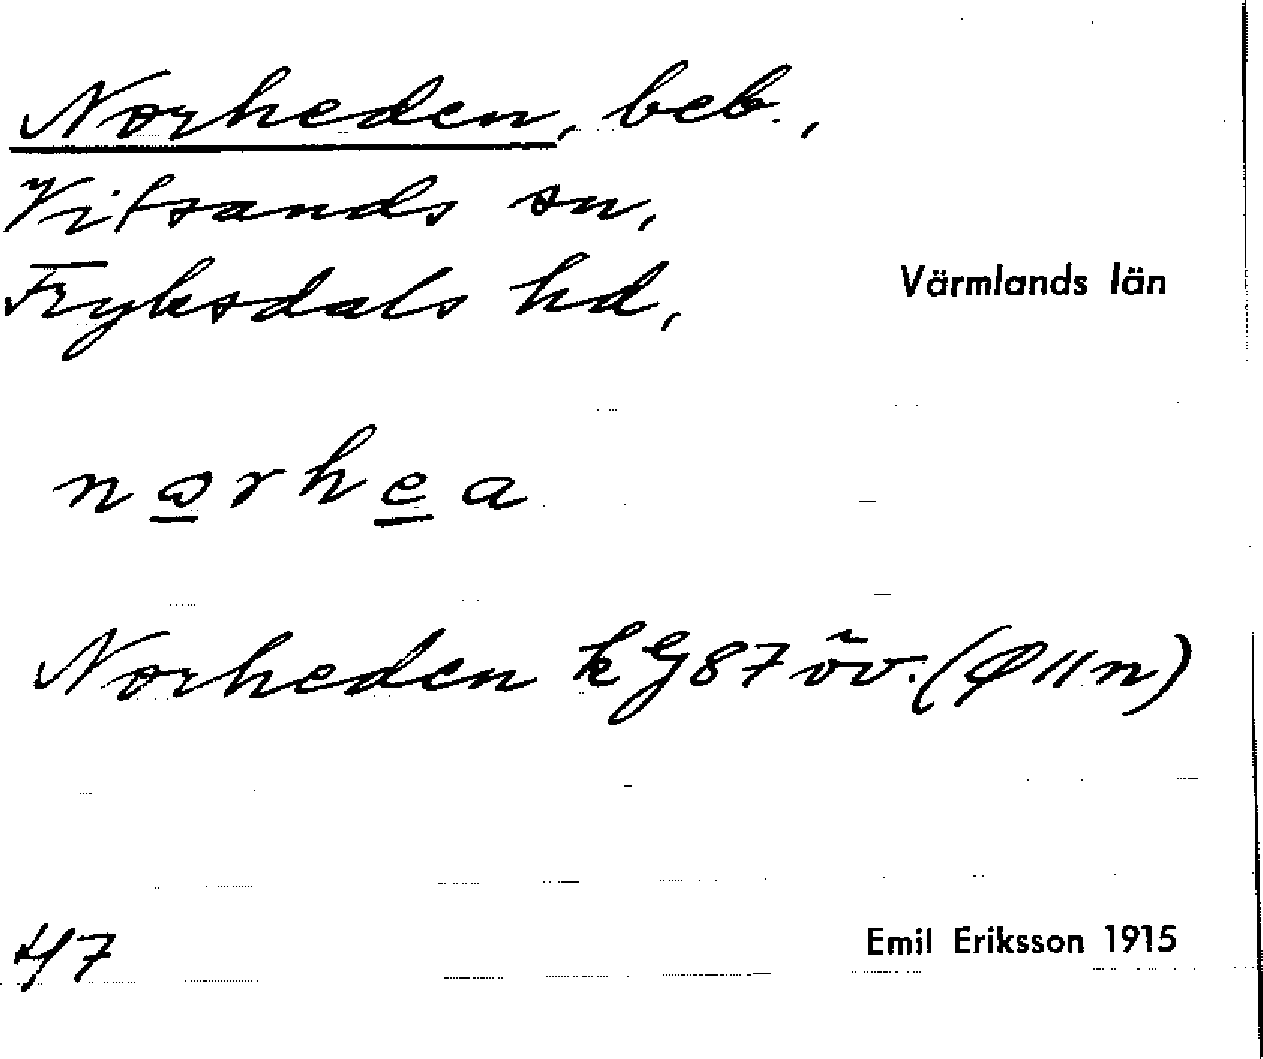 Norheden, beb.,
Vitsands sn,
Fryksdals hd,
Värmlands län
norhea
Norheden kG87öv.(Ø11n)
47
Emil Eriksson 1915